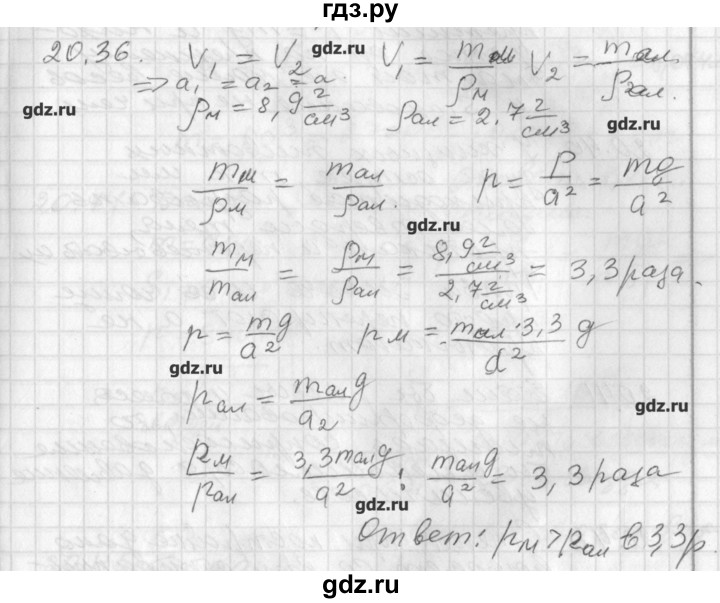 гдз.ру
20.36. V₁ = V₂ gdz.ru V₁ = mм/ρм V₂ = mал./ρал.
⇒ a₁ = a₂ = a.
gdz.ru ρм = 8,9 г/см³ ρал = 2,7 г/см³ gdz.ru
mм/ρм = mал/ρал. p = P/a² = mg/a²
gdz.ru
mм/mал = ρм/ρал = 8,9 г/см³ / 2,7 г/см³ = 3,3 раза.
p = mg/a² pм = mал·3,3 g/a²
gdz.ru
pал = mалg/a² gdz.ru
pм/pал = 3,3mалg/a² : mалg/a² = 3,3 раза
gdz.ru
Ответ: pм>pал в 3,3р.
gdz.ru